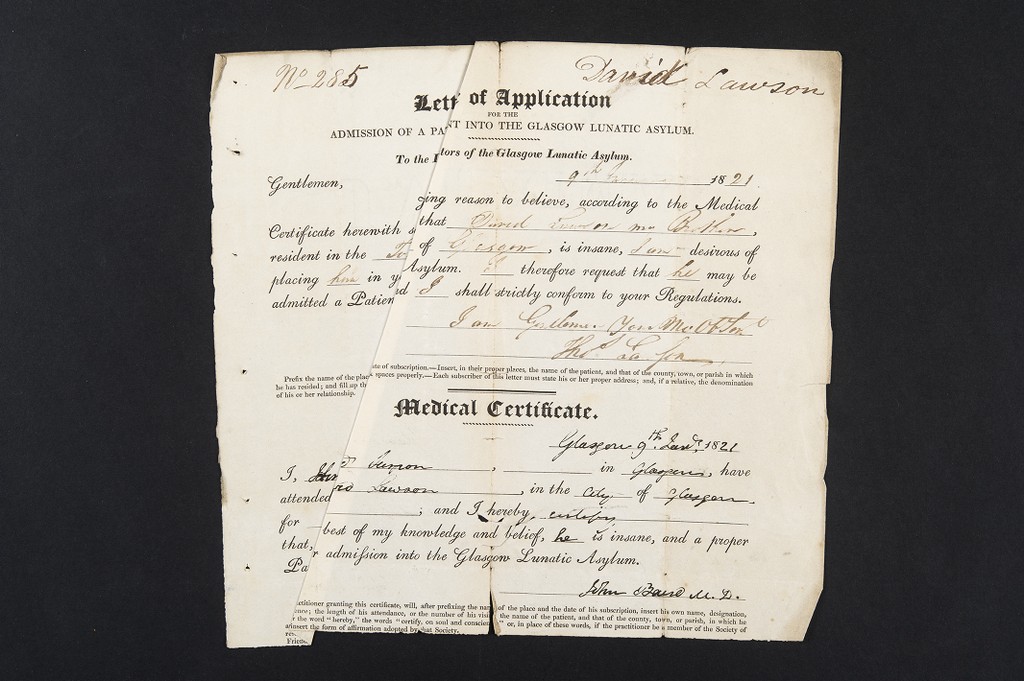 No 285 David Lawson
Lett of Application
FOR THE
ADMISSION OF A PA NT INTO THE GLASGOW LUNATIC ASYLUM.
To the tors of the Glasgow Lunatic Asylum.
9th 1821
Gentlemen,
ing reason to believe, according to the Medical
Certificate herewith s that David Lawson
resident in the of Glasgow, is insane, desirous of
placing him in y Asylum. I therefore request that he may be
admitted a Patien d I shall strictly conform to your Regulations.
I am Gentlemen Your
Thos Lawson
ate of subscription.—Insert, in their proper places, the name of the patient, and that of the county, town, or parish in which
Prefix the name of the place spaces properly.—Each subscriber of this letter must state his or her proper address; and, if a relative, the denomination
he has resided; and fill up th
of his or her relationship.
Medical Certificate.
Glasgow 9th Jany. 1821
I, in Glasgow, have
attended Lawson, in the City of Glasgow,
for ; and I hereby, certify
that, best of my knowledge and belief, he is insane, and a proper
Pa r admission into the Glasgow Lunatic Asylum.
John Baird M.D.
actitioner granting this certificate, will, after prefixing the name of the place and the date of his subscription, insert his own name, designation,
ence; the length of his attendance, or the number of his visi of the patient, and that of the county, town, or parish, in which he
r the word "hereby," the words "certify, on soul and conscien " or, in place of these words, if the practitioner be a member of the Society of
insert the form of affirmation adopted by that Society.
res
Frien